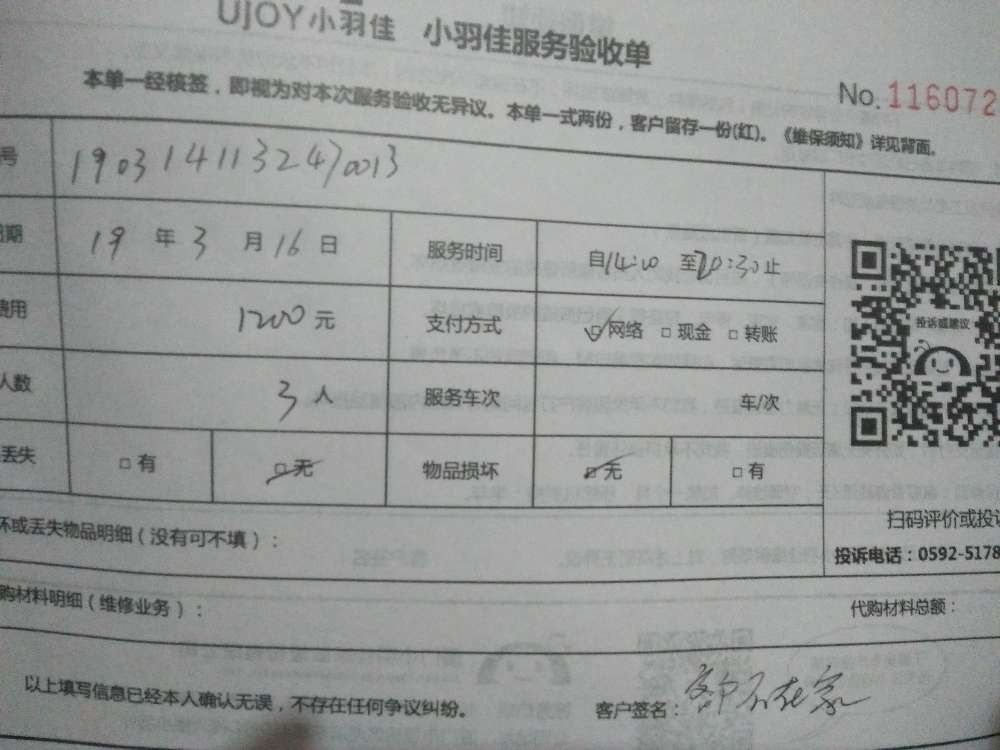 UJOY小羽佳 小羽佳服务验收单
No.116072
本单一经核签，即视为对本次服务验收无异议。本单一式两份，客户留存一份(红)。《维保须知》详见背面。
号 1903141132470013
日期 19 年 3 月 16 日 服务时间 自14:00 至20:30止
费用 1200 元 支付方式 网络 现金 转账
投诉或建议
人数 3 人 服务车次 车/次
丢失 有 无 物品损坏 无 有
坏或丢失物品明细（没有可不填）：
扫码评价或投诉
投诉电话：0592-5178
购材料明细（维修业务）：
代购材料总额：
以上填写信息已经本人确认无误，不存在任何争议纠纷。 客户签名：客户不在家